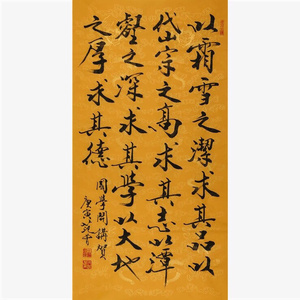 以霜雪之潔求其品以
岱宗之高求其志以潭
壑之深求其學以大地
之厚求其德
國學開講賀
庚寅